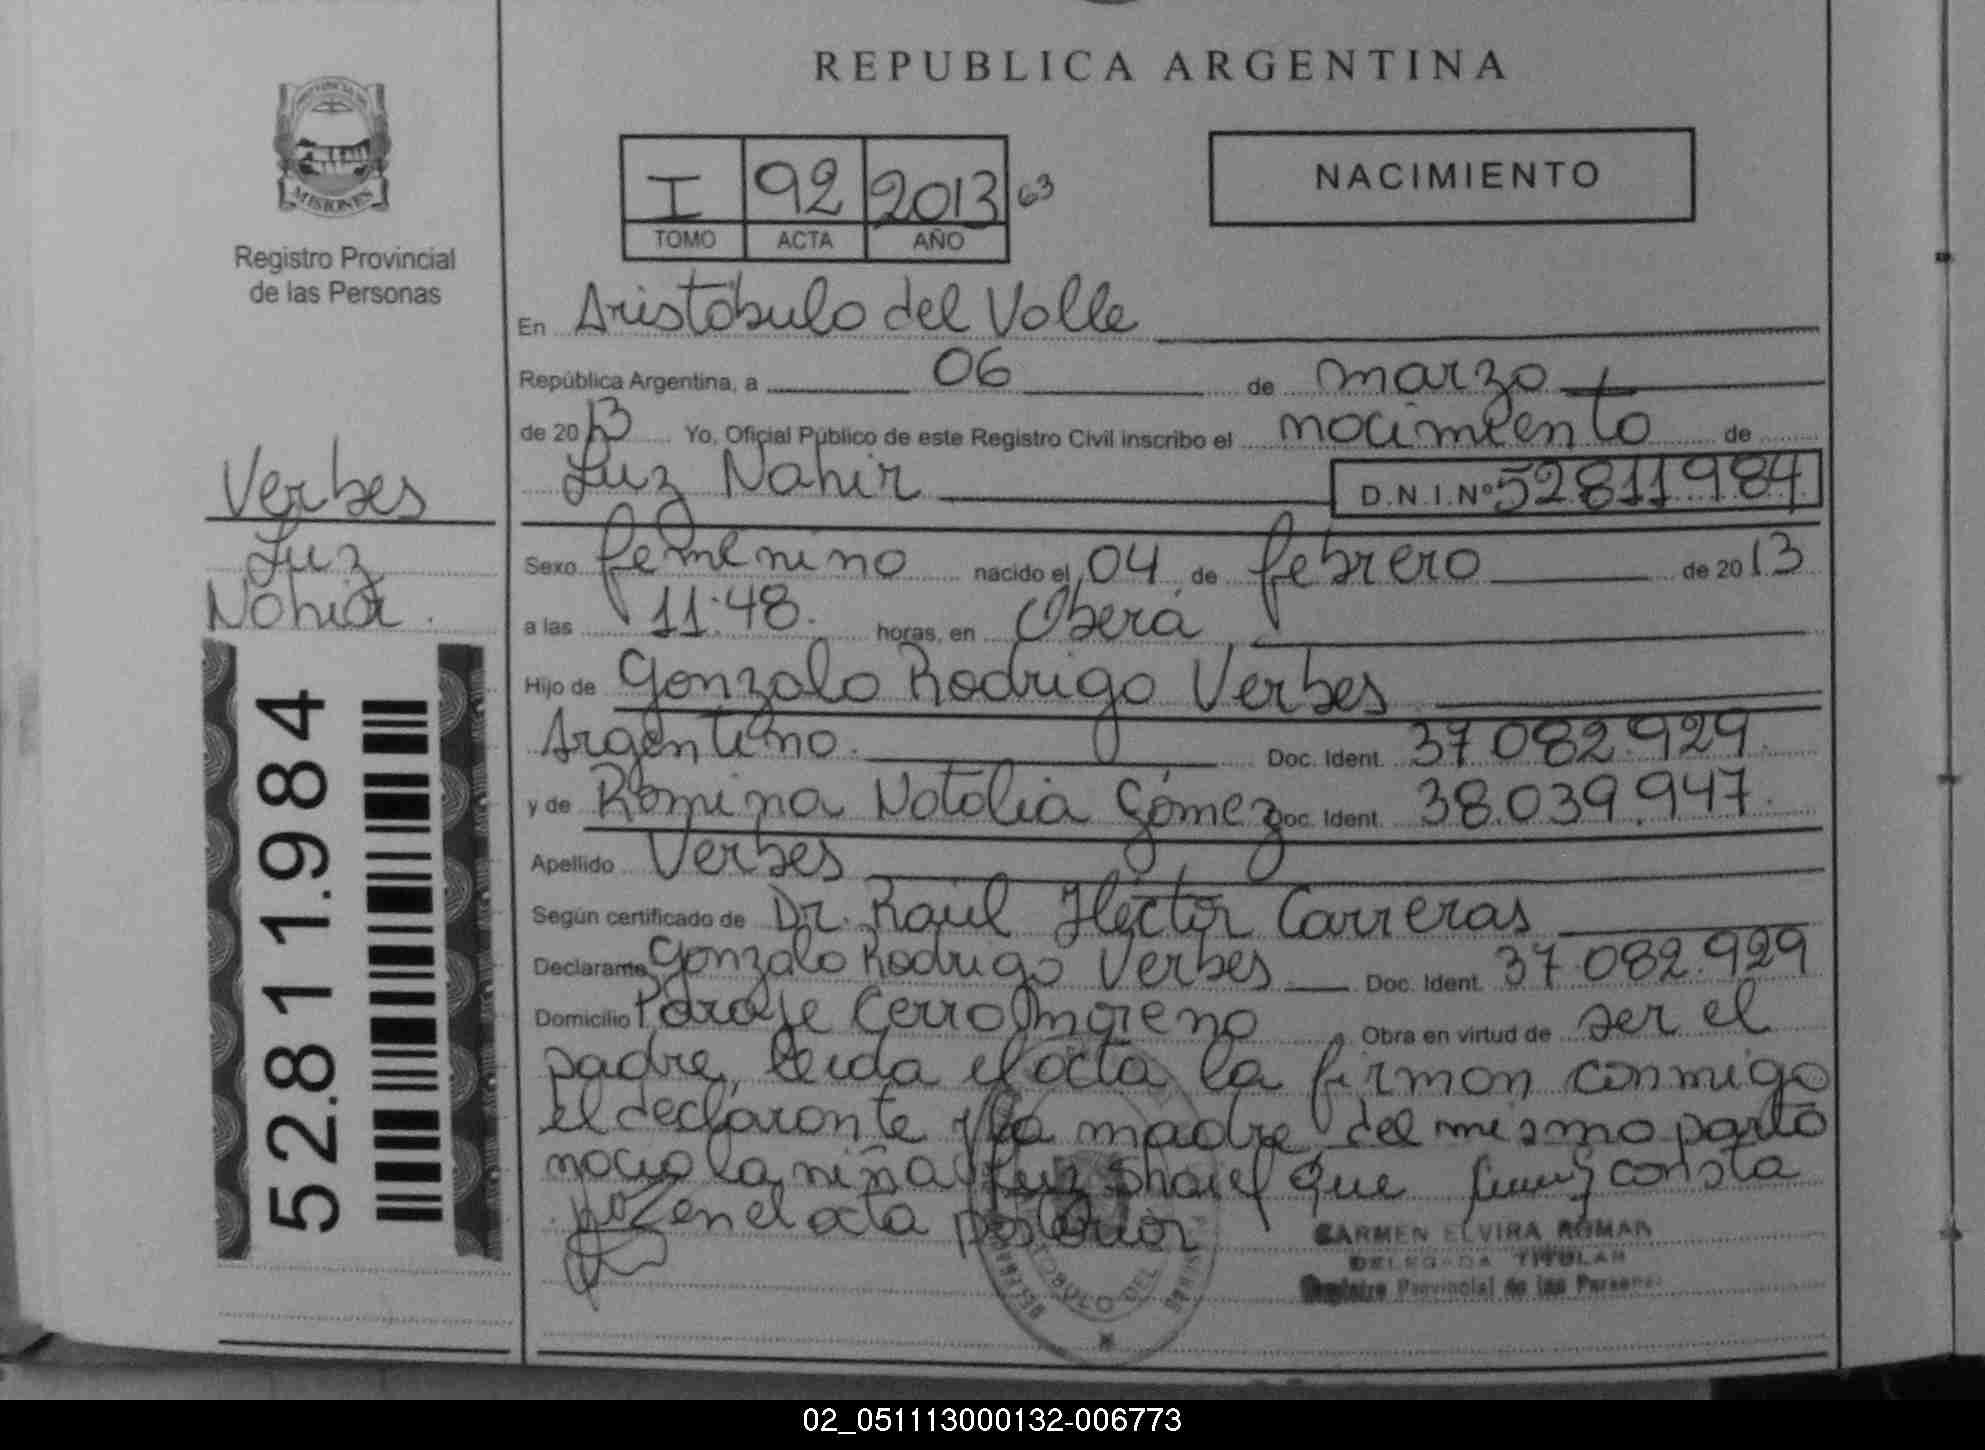 REPUBLICA ARGENTINA
MISIONES
Registro Provincial
de las Personas
I 92 2013 63
TOMO ACTA AÑO
NACIMIENTO
En Aristóbulo del Valle
República Argentina, a 06 de marzo
de 2013 Yo, Oficial Público de este Registro Civil inscribo el nacimiento de
Luz Nahir D.N.I.Nº 52811984
Verbes
Luz
Nahir.
52.811.984
Sexo femenino nacido el 04 de febrero de 2013
a las 11:48. horas, en Oberá
Hijo de Gonzalo Rodrigo Verbes
Argentino. Doc. Ident. 37 082.929.
y de Romina Natalia Gómez Doc. Ident. 38.039.947.
Apellido Verbes
Según certificado de Dr. Raúl Héctor Carreras
Declarante Gonzalo Rodrigo Verbes Doc. Ident. 37.082.929
Domicilio Paraje Cerro Moreno Obra en virtud de ser el
padre, leida el acta la firman conmigo
el declarante y la madre del mismo parto
nacio la niña Luz que consta
en el acta posterior
CARMEN ELVIRA ROMAN
DELEGADA TITULAR
Registro Provincial de las Personas
02_051113000132-006773